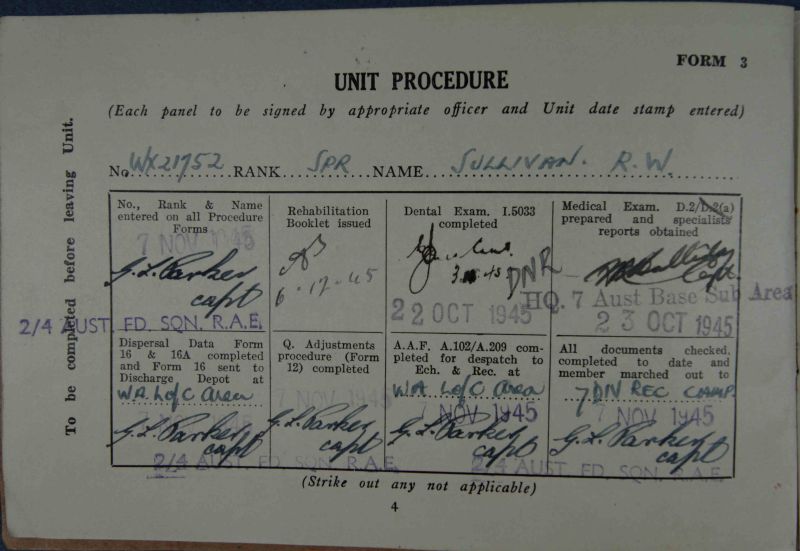 FORM 3
UNIT PROCEDURE
(Each panel to be signed by appropriate officer and Unit date stamp entered)
To be completed before leaving Unit.
No WX21752 RANK SPR NAME SULLIVAN. R.W.
No., Rank & Name
entered on all Procedure
Forms
7 NOV 1945
G. L. Parker
capt
2/4 AUST. FD. SQN. R.A.E.
Rehabilitation
Booklet issued
6-12-45
Dental Exam. I.5033
completed
22 OCT 1945
Medical Exam. D.2/D.2(a)
prepared and specialists'
reports obtained
DNR
Capt.
HQ. 7 Aust Base Sub Area
23 OCT 1945
Dispersal Data Form
16 & 16A completed
and Form 16 sent to
Discharge Depot at
W.A. L of C Area
G. L. Parker
capt
2/4 AUST. FD. SQN. R.A.E.
Q. Adjustments
procedure (Form
12) completed
7 NOV 1945
G. L. Parker
capt
A.A.F. A.102/A.209 com-
pleted for despatch to
Ech. & Rec. at
W.A. L of C Area
7 NOV 1945
G. L. Parker
capt
All documents checked,
completed to date and
member marched out to
7 DN REC CAMP.
7 NOV 1945
G. L. Parker
capt
2/4 AUST. FD. SQN. R.A.E.
(Strike out any not applicable)
4